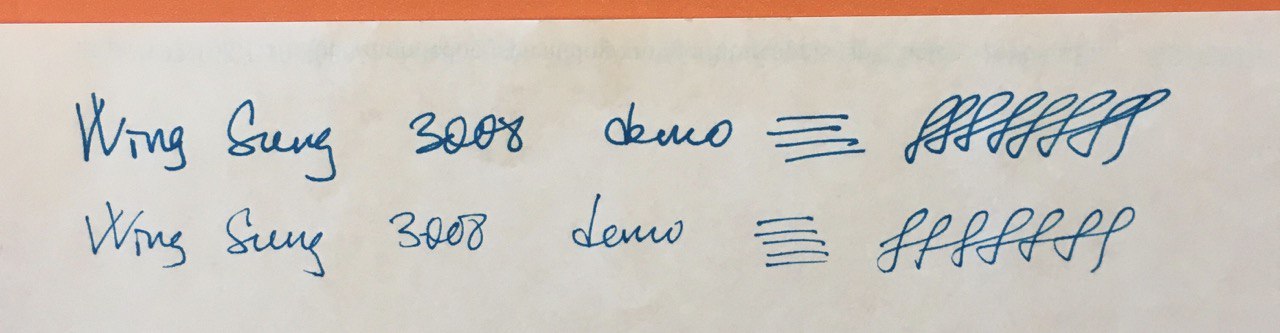 Wing Sung 3008 demo
Wing Sung 3008 demo